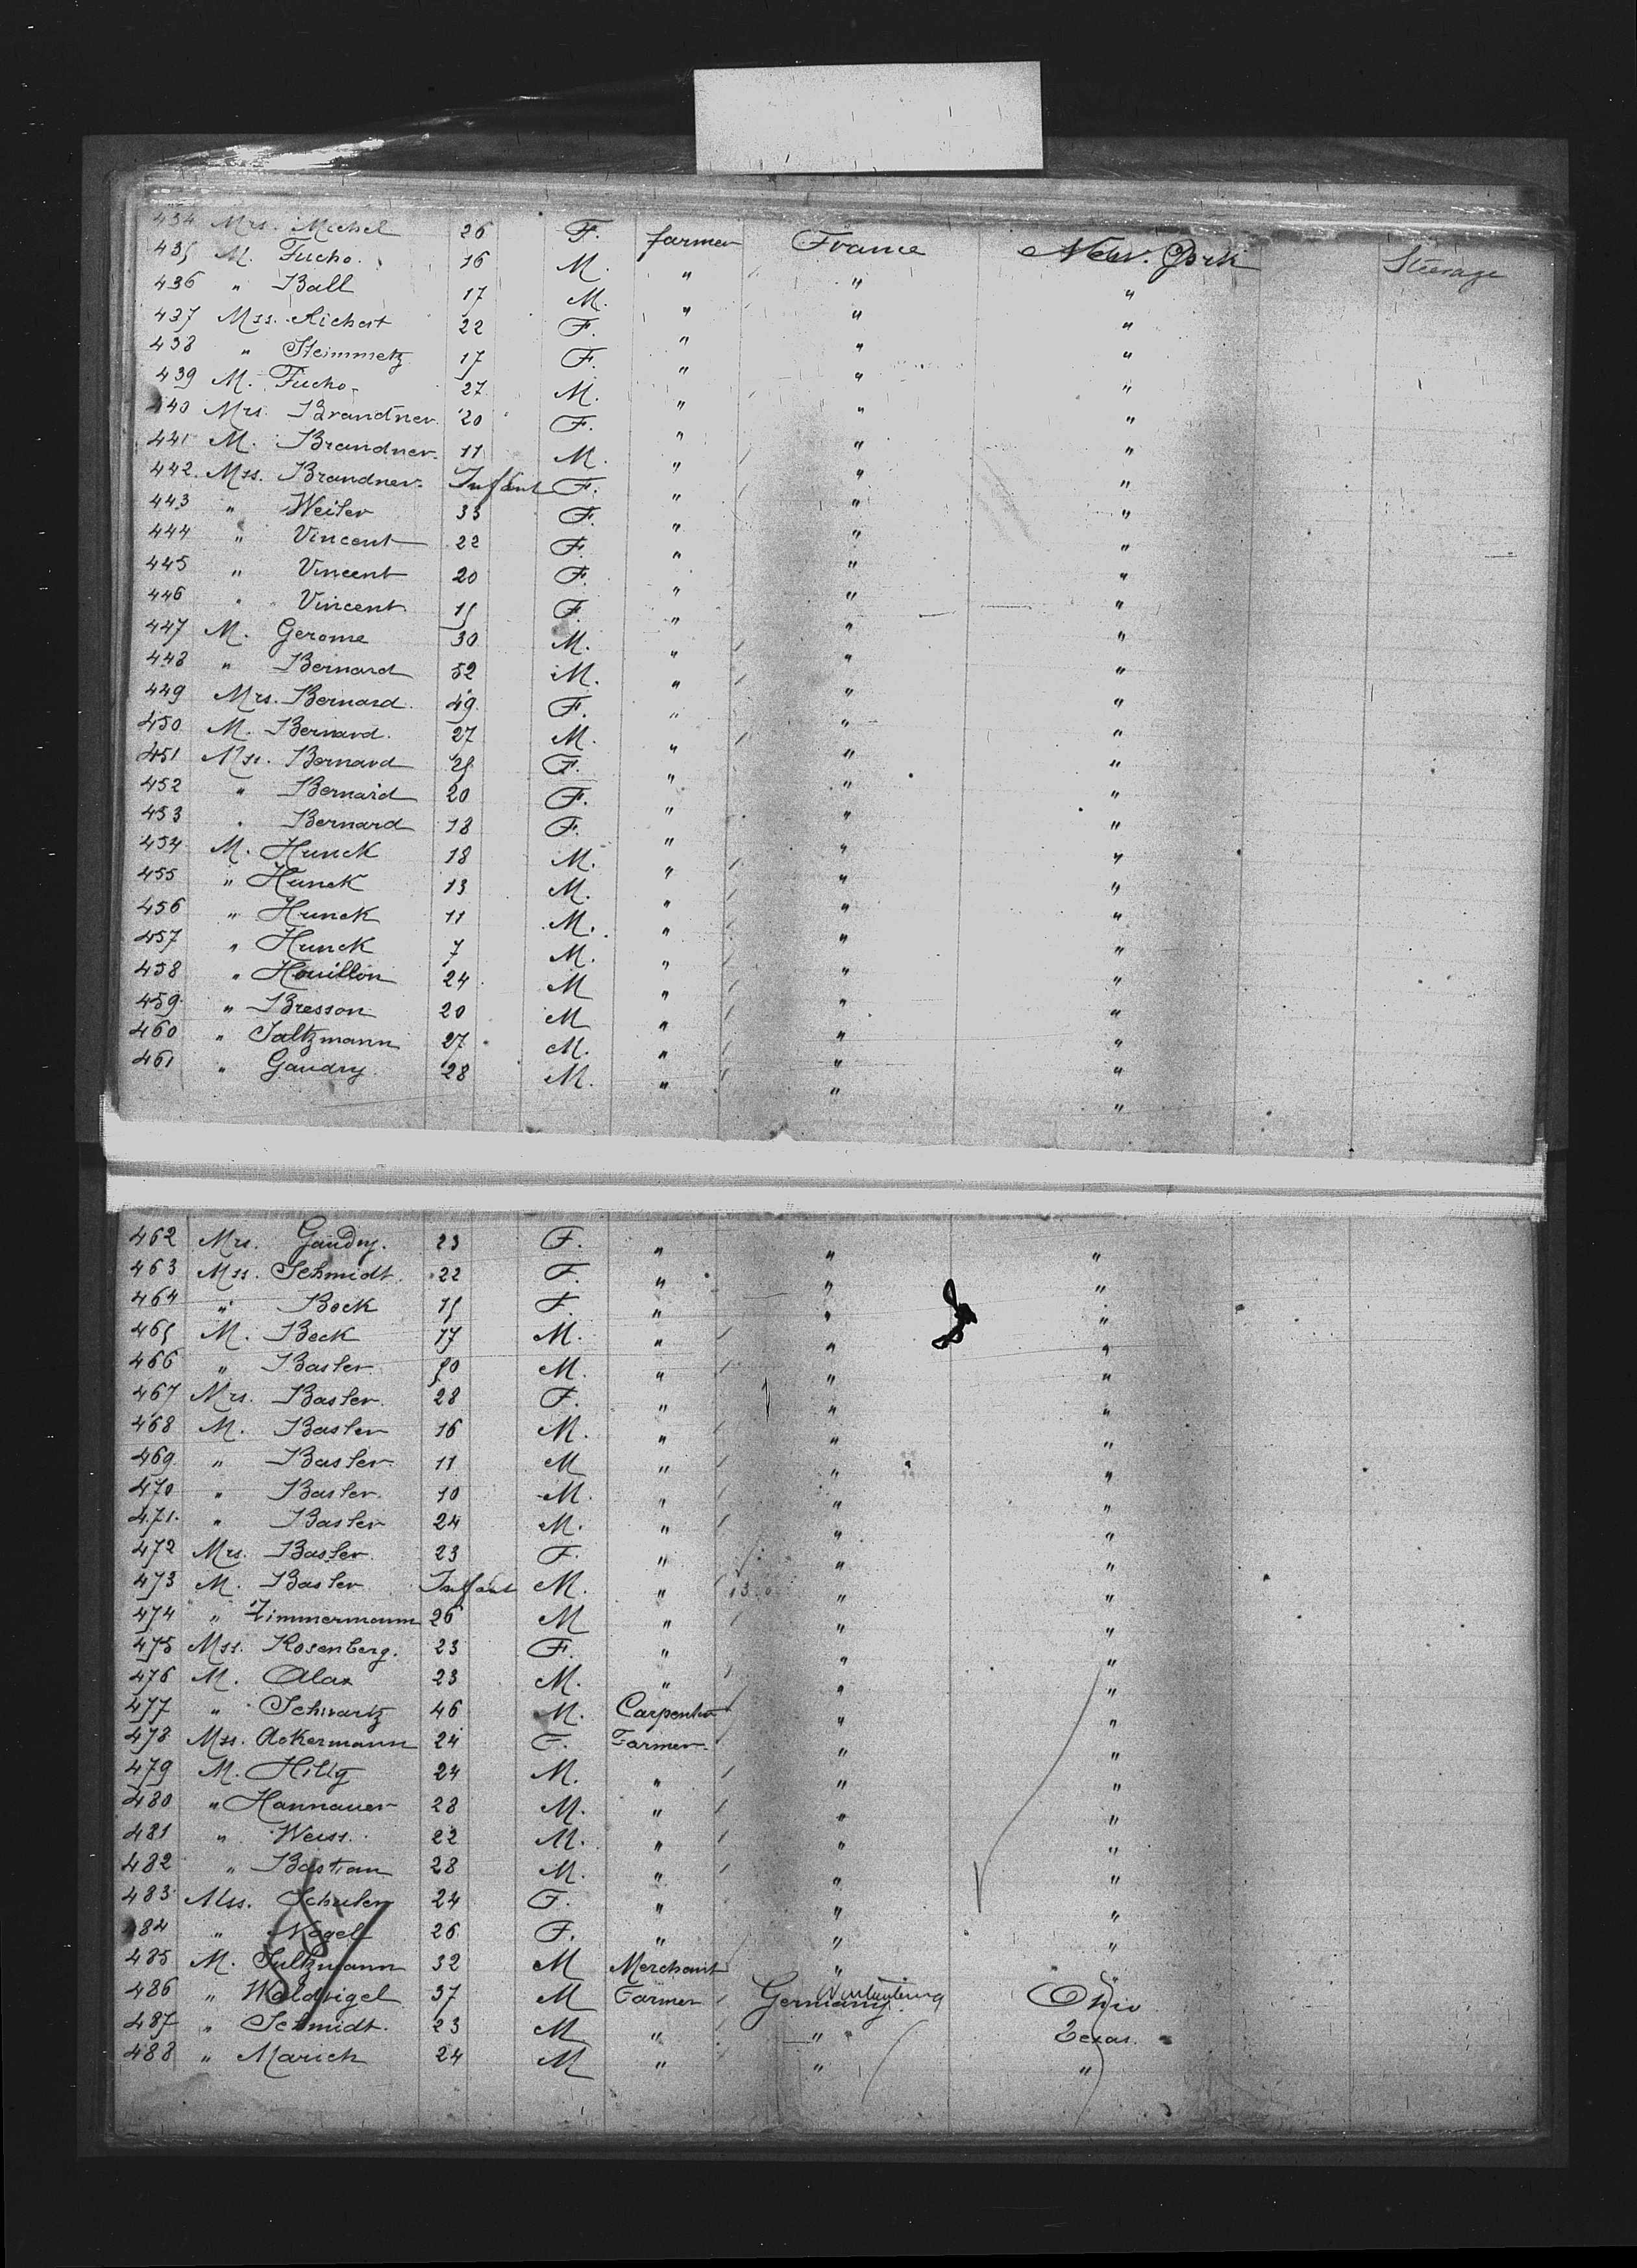 434 Mrs. Michel 26 F. farmer France New. York Steerage
435 M. Fucho. 16 M. " " "
436 " Ball 17 M. " " "
437 Mss. Richert 22 F. " " "
438 " Steimmetz 17 F. " " "
439 M. Fucho. 27 M. " " "
440 Mrs. Brandner. 20 F. " " "
441 M. Brandner. 11 M. " " "
442. Mss. Brandner. Infant F. " " "
443 " Weiler 33 F. " " "
444 " Vincent 22 F. " " "
445 " Vincent 20 F. " " "
446 " Vincent 15 F. " " "
447 M. Gerome 30 M. " " "
448 " Bernard 52 M. " " "
449 Mrs. Bernard. 49. F. " " "
450 M. Bernard. 27 M. " " "
451 Mss. Bernard 25 F. " " "
452 " Bernard 20 F. " " "
453 " Bernard 18 F. " " "
454 M. Hunck 18 M. " " "
455 " Hunck 13 M. " " "
456 " Hunck 11 M. " " "
457 " Hunck 7 M. " " "
458 " Houillon 24 M " " "
459 " Bresson 20 M " " "
460 " Saltzmann 27 M. " " "
461 " Gaudry. 28 M. " " "
462 Mrs. Gaudry. 23 F. " " "
463 Mss. Schmidt. 22 F. " " "
464 " Bock 15 F. " " "
465 M. Beck 17 M. " " "
466 " Basler. 50 M. " " "
467 Mrs. Basler. 28 F. " " "
468 M. Basler 16 M. " " "
469. " Basler. 11 M " " "
470 " Basler. 10 M. " " "
471. " Basler 24 M. " " "
472 Mrs. Basler. 23 F. " " "
473 M. Basler Infant M. " " "
474 " Zimmermann 26 M " " "
475 Mss. Rosenberg. 23 F. " " "
476 M. Alax 23 M. " " "
477 " Schwartz 46 M. Carpenter " "
478 Mss. Ackermann 24 F. Farmer. " "
479 M. Hilly 24 M. " " "
480 " Hannauer 28 M. " " "
481 " Weiss. 22 M. " " "
482 " Bastian 28 M. " " "
483 Mss. Schuler 24 F. " " "
484 " Nagel 26 F. " " "
485 M. Sultzmann 32 M Merchant " "
486 " Waldvigel 37 M Farmer Germany. Ohio
487 " Schmidt. 23 M " " Texas.
488 " Marich 24 M " " "